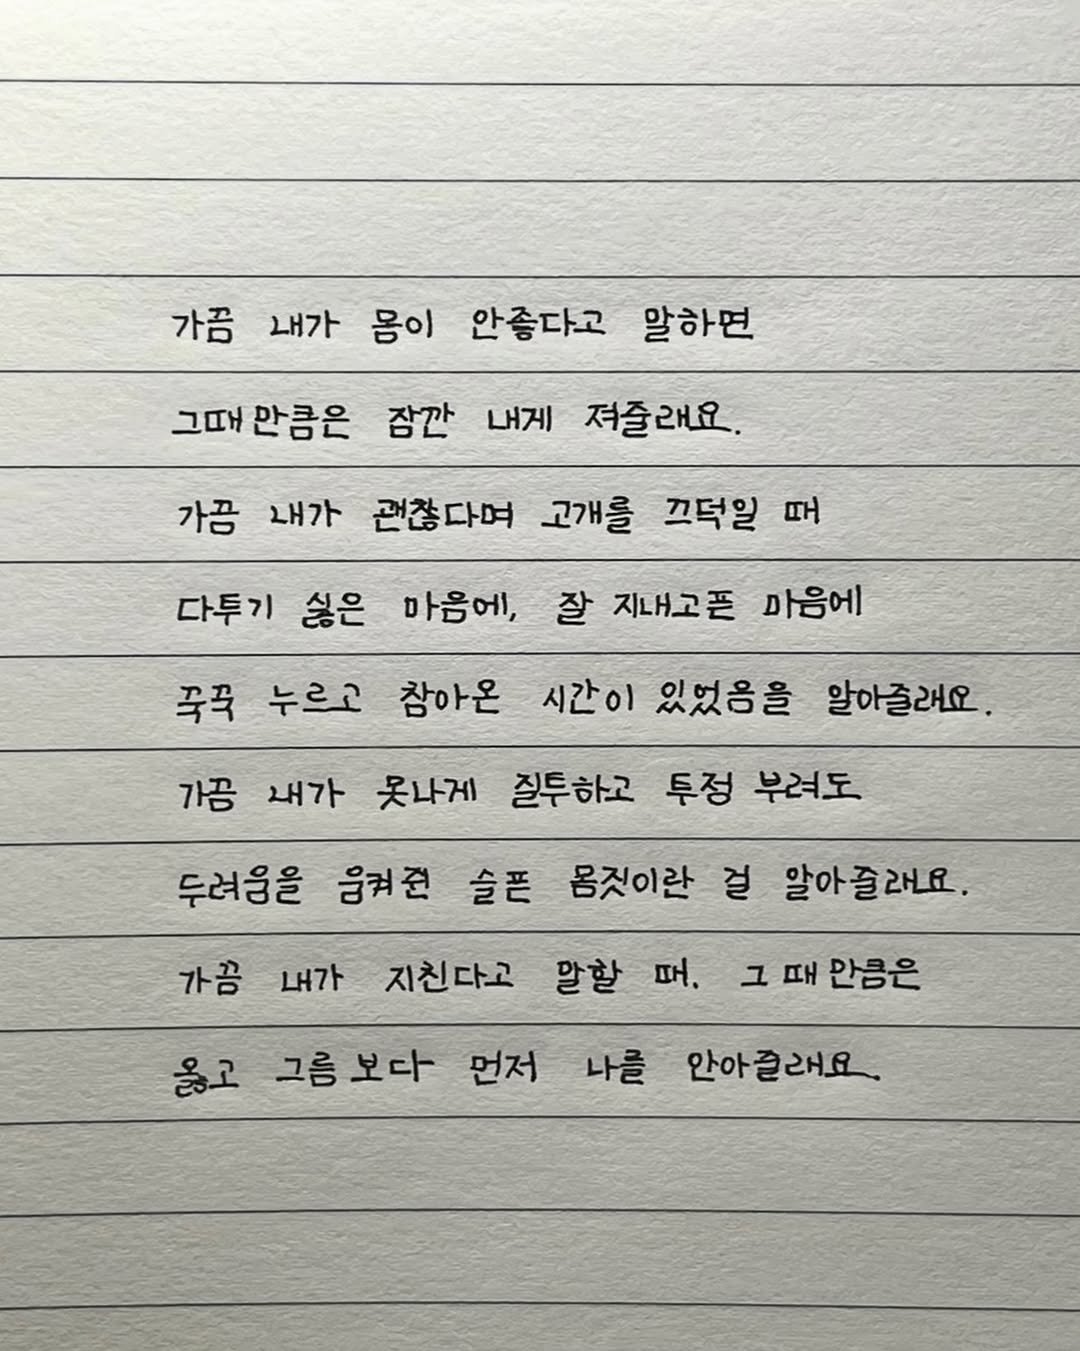 가끔 내가 몸이 안좋다고 말하면
그때만큼은 잠깐 내게 져줄래요.
가끔 내가 괜찮다며 고개를 끄덕일 때
다투기 싫은 마음에, 잘 지내고픈 마음에
꾹꾹 누르고 참아온 시간이 있었음을 알아줄래요.
가끔 내가 못나게 질투하고 투정 부려도
두려움을 움켜쥔 슬픈 몸짓이란 걸 알아줄래요.
가끔 내가 지친다고 말할 때. 그때만큼은
옳고 그름보다 먼저 나를 안아줄래요.